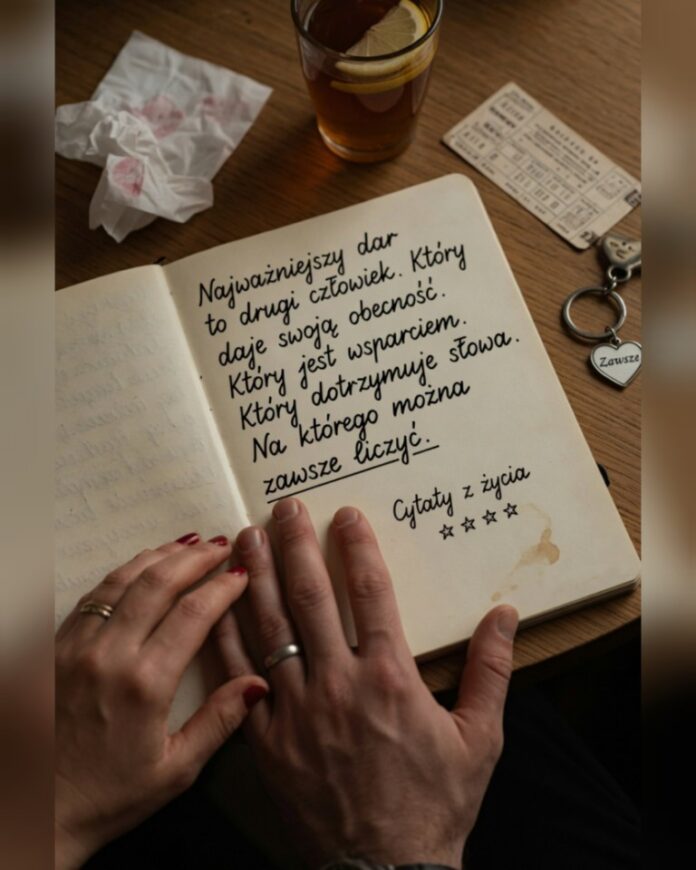 Najważniejszy dar
to drugi człowiek. Który
daje swoją obecność.
Który jest wsparciem.
Który dotrzymuje słowa.
Na którego można
zawsze liczyć.
Cytaty z życia
Zawsze